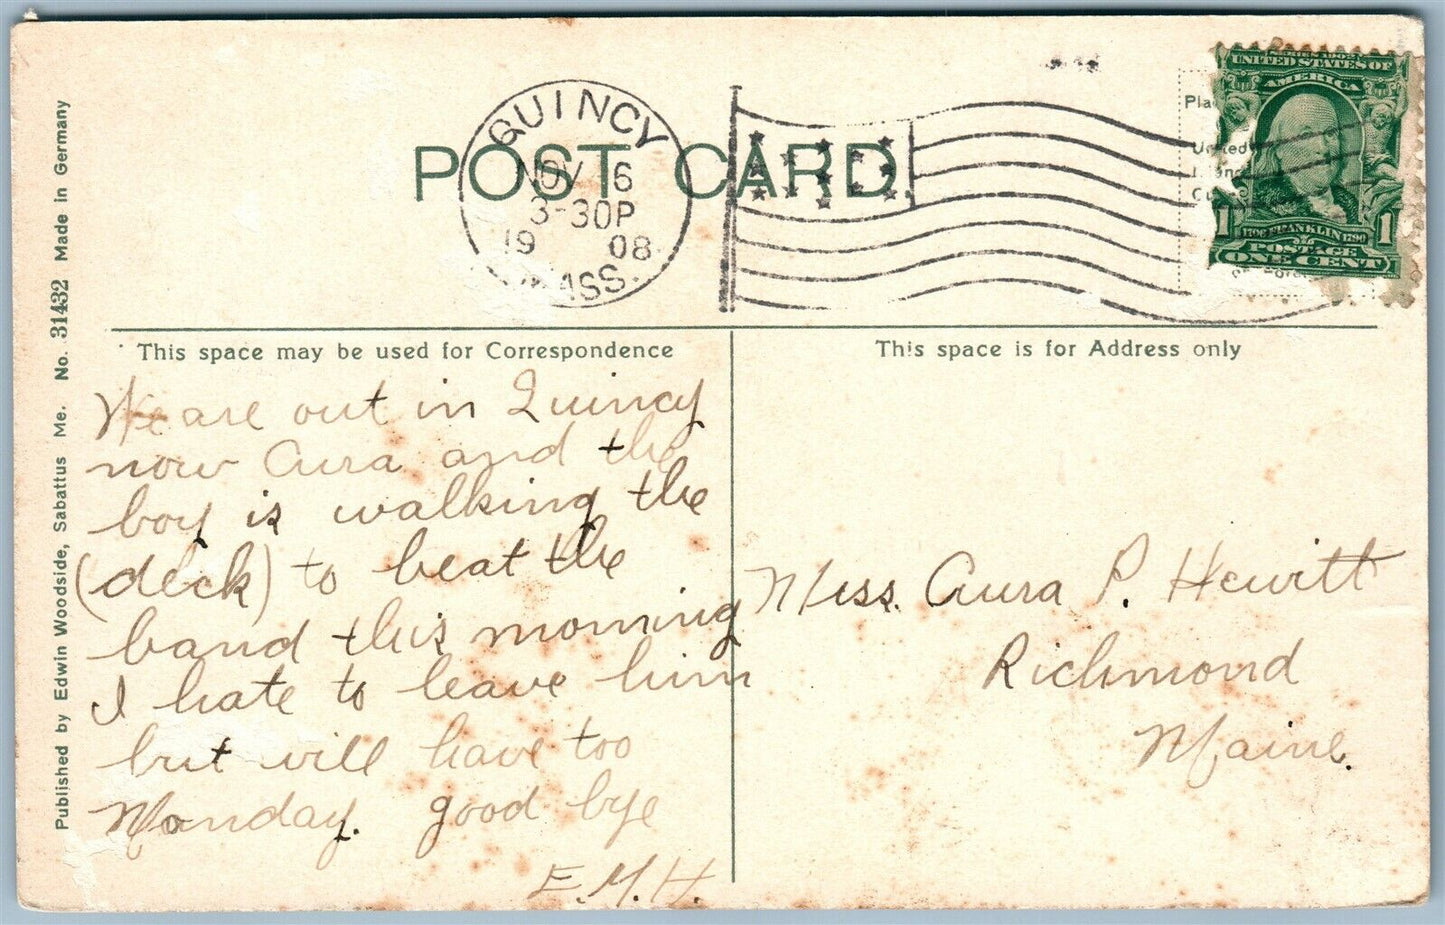 POST CARD.
QUINCY
NOV 6
3-30P
19 08
MASS.
SERIES 1902
UNITED STATES OF
AMERICA
1 1706 FRANKLIN 1790 1
POSTAGE
ONE CENT
Published by Edwin Woodside, Sabattus Me. No. 31432 Made in Germany
This space may be used for Correspondence
This space is for Address only
We are out in Quincy
now Aura and the
boy is walking the
(deck) to beat the
band this morning
I hate to leave him
but will have too
Monday. good bye
E.M.H.
Miss. Aura P. Hewitt
Richmond
Maine.